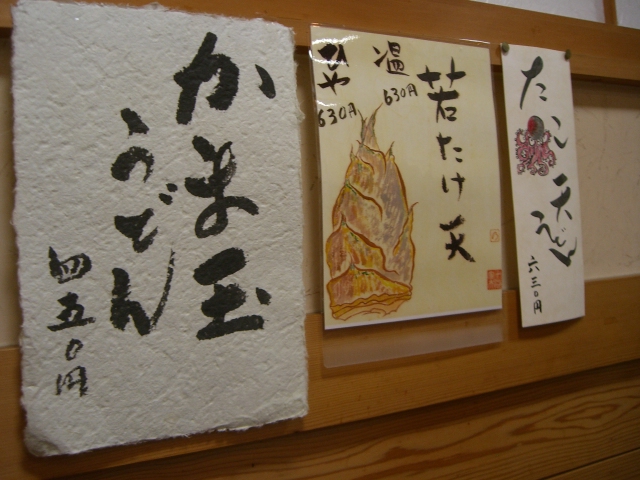 かま玉
うどん
四五〇円
若たけ天
温
630円
ひや
630円
たこ天
うどん
六三〇円